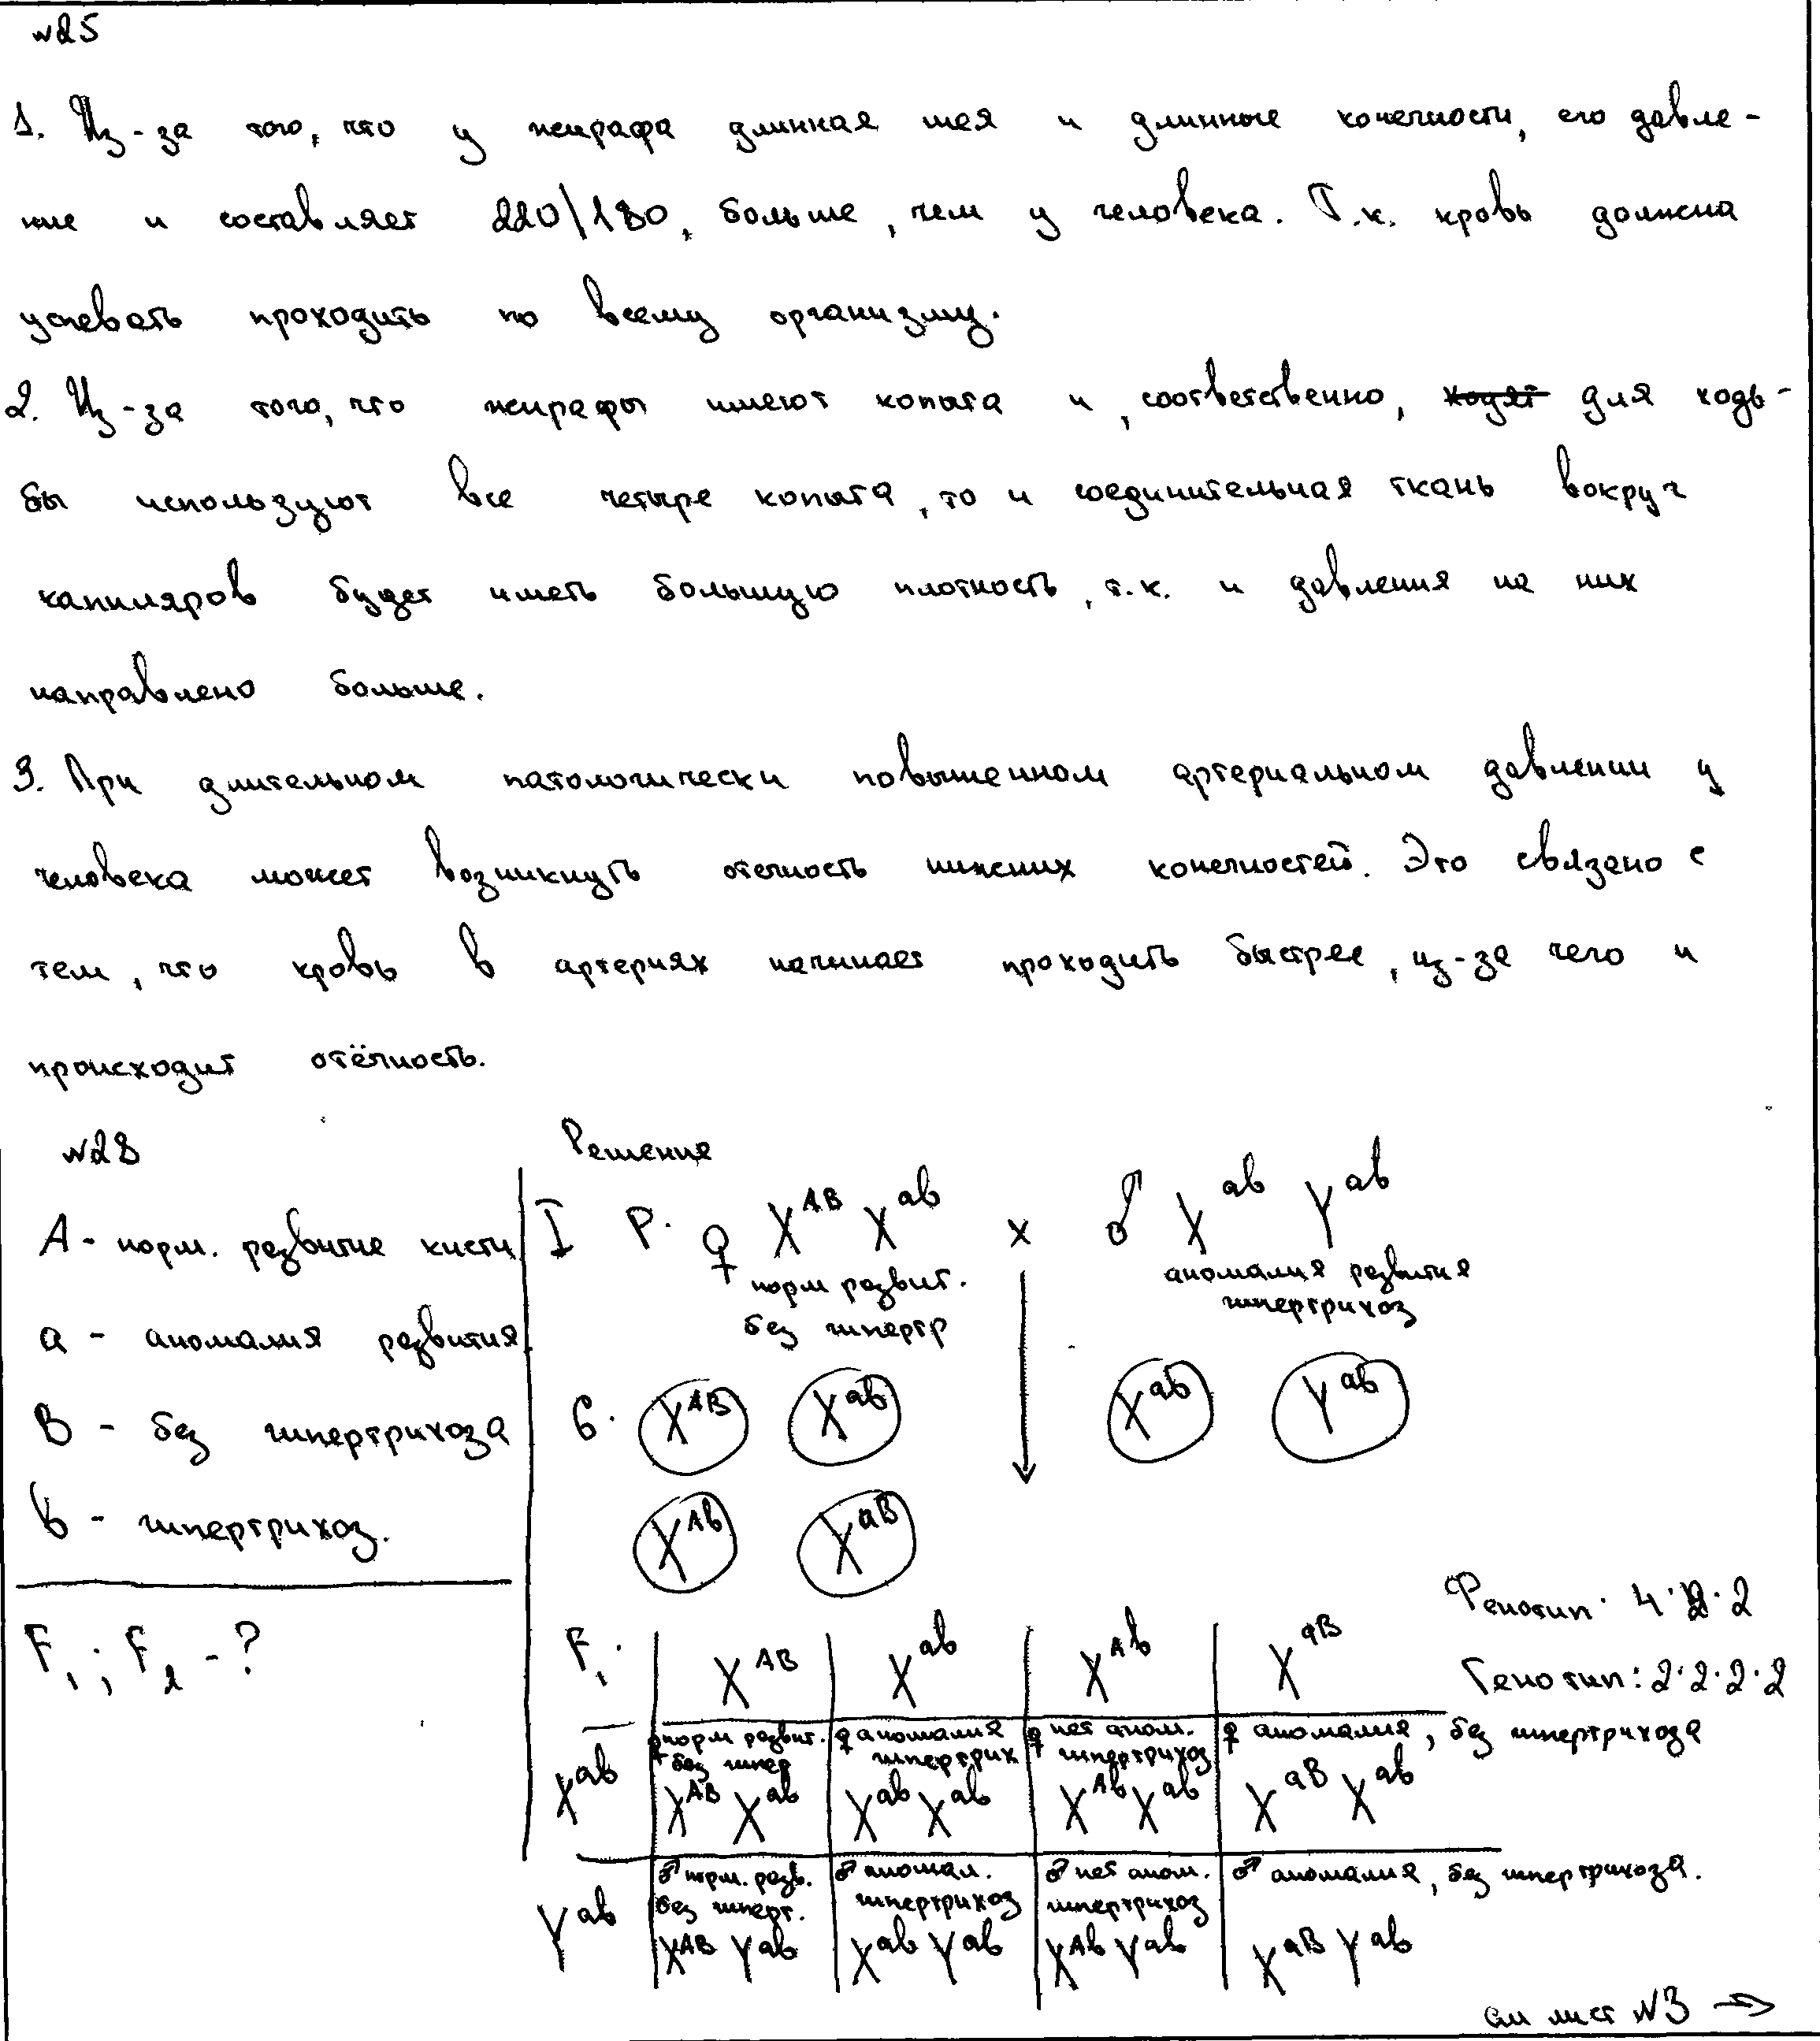 №25
1. Из-за того, что у жирафа длинная шея и длинные конечности, его давле-
ние и составляет 220/180, больше, чем у человека. Т.к. кровь должна
успевать проходить по всему организму.
2. Из-за того, что жирафы имеют копыта и, соответственно, ходят для ходь-
бы используют все четыре копыта, то и соединительная ткань вокруг
капилляров будет иметь большую плотность, т.к. и давления на них
направлено больше.
3. При длительном патологически повышенном артериальном давлении у
человека может возникнуть отечность нижних конечностей. Это связано с
тем, что кровь в артериях начинает проходить быстрее, из-за чего и
происходит отёчность.
№28
Решение
A - норм. развитие кисти
a - аномалия развития
B - без гипертрихоза
b - гипертрихоз.
F₁; F₂ - ?
I P. ♀ X^AB X^ab x ♂ X^ab Y^ab
норм развит. без гипертр
аномалия развития гипертрихоз
G. X^AB X^ab X^ab Y^ab
X^Ab X^aB
Фенотип: 4:2:2
Генотип: 2:2:2:2
F₁. X^AB X^ab X^Ab X^aB
♀ норм развит. без гипер ♀ аномалия гипертрих ♀ нет аном. гипертрихоз ♀ аномалия, без гипертрихоза
X^ab X^AB X^ab X^ab X^ab X^Ab X^ab X^aB X^ab
♂ норм. разв. без гиперт. ♂ аномал. гипертрихоз ♂ нет аном. гипертрихоз ♂ аномалия, без гипертрихоза.
Y^ab X^AB Y^ab X^ab Y^ab X^Ab Y^ab X^aB Y^ab
см лист №3 →